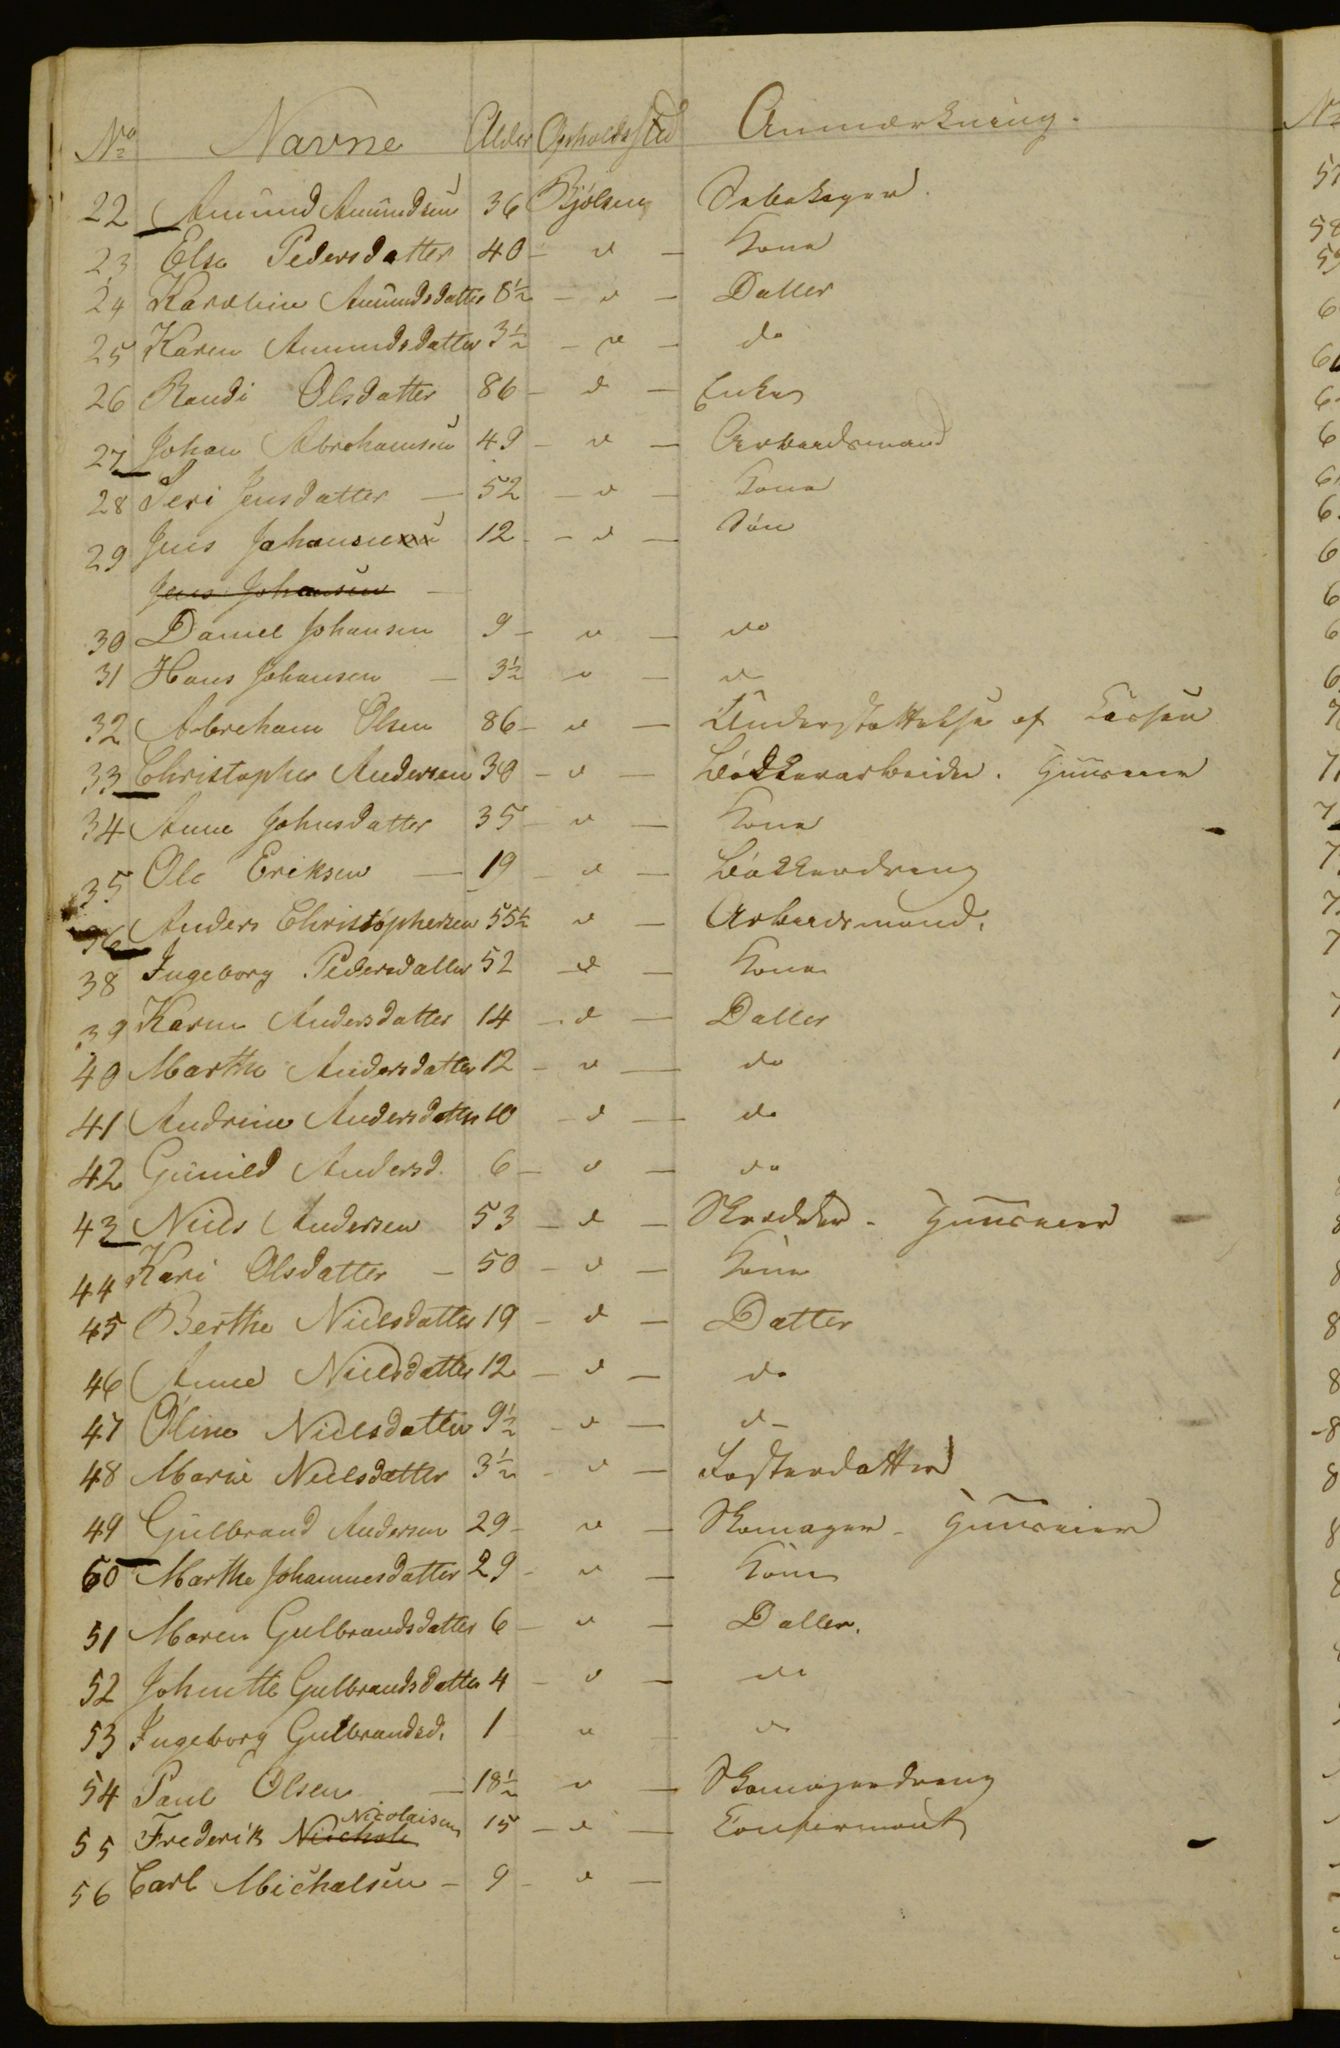 No Navne Alder Opholdssted Anmærkning.
22 Amund Amundsen 36 Bjölsen Sebekoger
23 Else Pedersdatter 40 - v - Kone
24 Karoline Amundsdatter 8½ - v - Datter
25 Karen Amundsdatter 3½ - v - do
26 Randi Olsdatter 86 - v - Enke
27 Johan Abrahamsen 49 - v - Arbeidsmand
28 Seri Jensdatter - 52 - v - Kone
29 Jens Johansen 12 - v - Sön
Jens Johansen -
30 Daniel Johansen 9 - v - do
31 Hans Johansen - 3½ v - d
32 Abraham Olsen 86 - v - Understøttelse af Kassen
33 Christopher Andersen 30 - v - Bödkerarbeider. Huuseier
34 Anne Johnsdatter 35 - v - Kone
35 Ole Eriksen - 19 - v - Bödkerdreng
36 Anders Christophersen 55½ v - Arbeidsmand.
38 Ingeborg Pedersdatter 52 - v - Kone
39 Karen Andersdatter 14 - v - Datter
40 Marthe Andersdatter 12 - v - do
41 Andrine Andersdatter 10 - v - do
42 Gunild Andersd. 6 - v - do
43 Niels Andersen 53 - v - Skrædder - Huuseier
44 Kari Olsdatter - 50 - v - Kone
45 Berthe Nielsdatter 19 - v - Datter
46 Anne Nielsdatter 12 - v - do
47 Oline Nielsdatter 9½ - v - d-
48 Marie Nielsdatter 3½ - v - Fosterdatter
49 Gulbrand Andersen 29 - v - Skomager - Huuseier
50 Marthe Johannesdatter 29 - v - Kone
51 Maren Gulbrandsdatter 6 - v - Datter.
52 Johnette Gulbrandsdatter 4 - v - do
53 Ingeborg Gulbrandsd. 1 v d
54 Paul Olsen - 18½ v - Skomagerdreng
55 Frederik Nicolaisen 15 - v - Confirmant
56 Carl Michalsen - 9 - v -